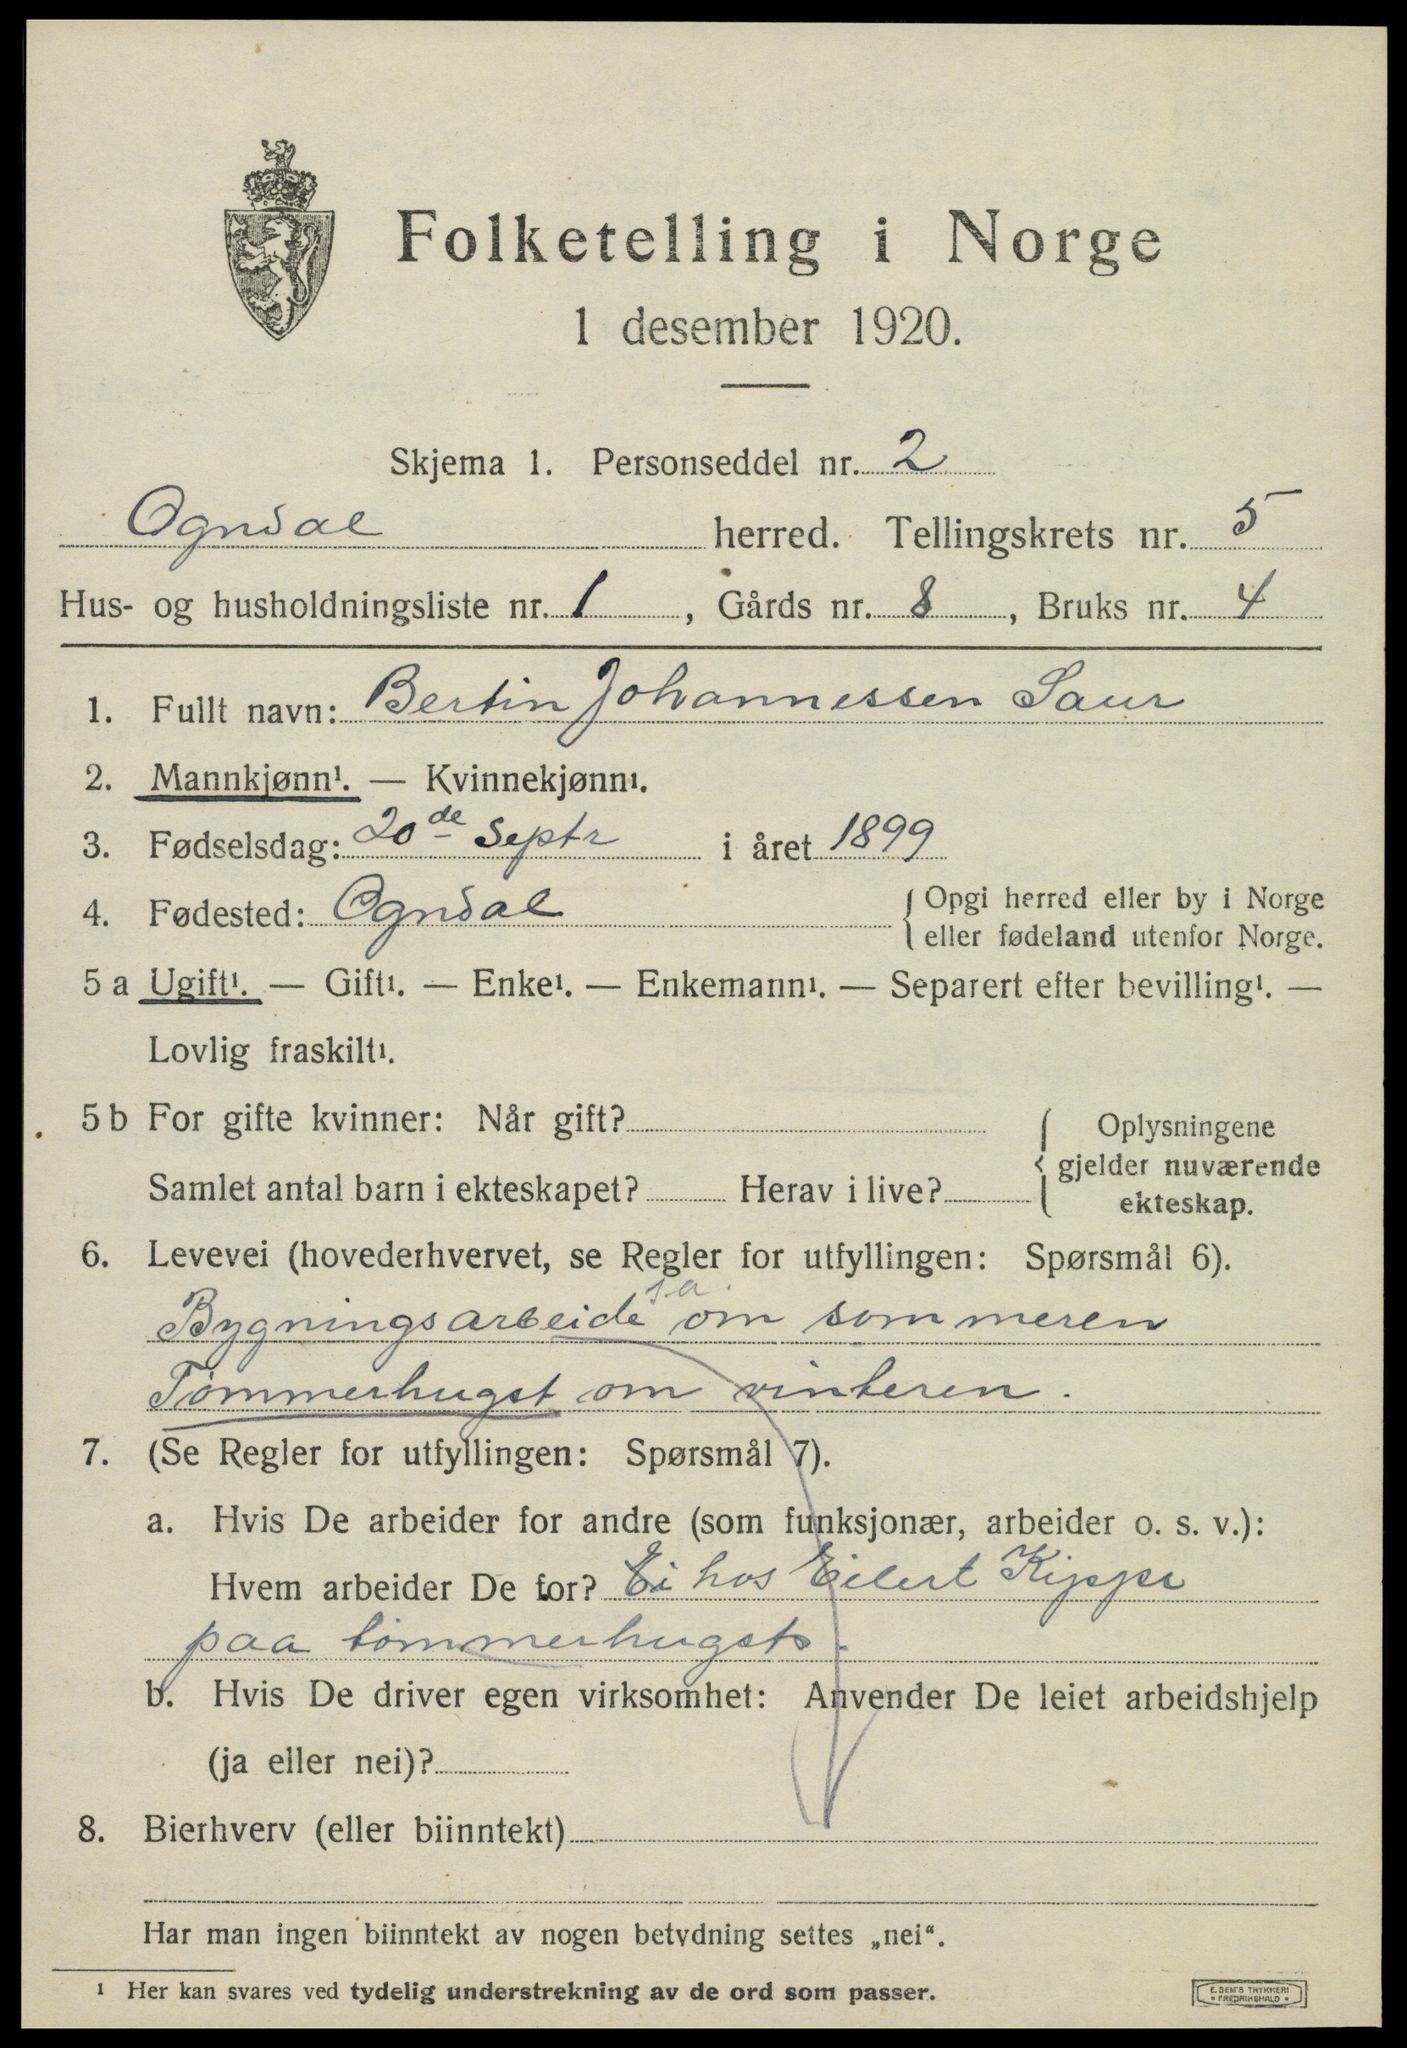 Folketelling i Norge
1 desember 1920.
Skjema 1. Personseddel nr. 2
Ogndal herred. Tellingskrets nr. 5
Hus- og husholdningsliste nr. 1, Gårds nr. 8, Bruks nr. 4
1. Fullt navn: Bertin Johannessen Saur
2. Mannkjønn¹. — Kvinnekjønn¹.
3. Fødselsdag: 20de Septr i året 1899
4. Fødested: Ogndal { Opgi herred eller by i Norge
eller fødeland utenfor Norge.
5 a Ugift¹. — Gift¹. — Enke¹. — Enkemann¹. — Separert efter bevilling¹. —
Lovlig fraskilt¹.
5 b For gifte kvinner: Når gift?
Samlet antal barn i ekteskapet? Herav i live?
{ Oplysningene
gjelder nuværende
ekteskap.
6. Levevei (hovederhvervet, se Regler for utfyllingen: Spørsmål 6).
s.a.
Bygningsarbeide om sommeren
Tømmerhugst om vinteren.
7. (Se Regler for utfyllingen: Spørsmål 7).
a. Hvis De arbeider for andre (som funksjonær, arbeider o. s. v.):
Hvem arbeider De for? Ei hos Eilert Kippe
paa tømmerhugst.
b. Hvis De driver egen virksomhet: Anvender De leiet arbeidshjelp
(ja eller nei)?
8. Bierhverv (eller biinntekt)
Har man ingen biinntekt av nogen betydning settes „nei“.
¹ Her kan svares ved tydelig understrekning av de ord som passer.
E. SEM'S TRYKKERI
• FREDRIKSHALD •